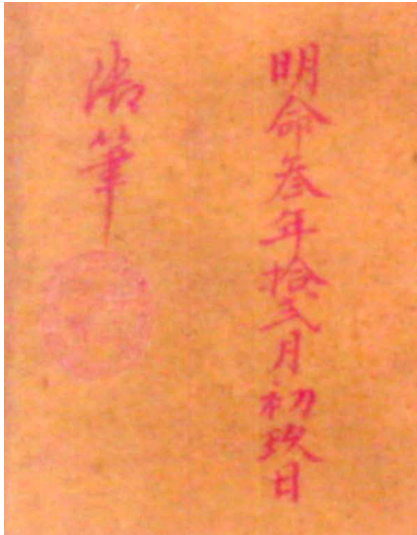 明命叁年拾弍月初玖日
御筆